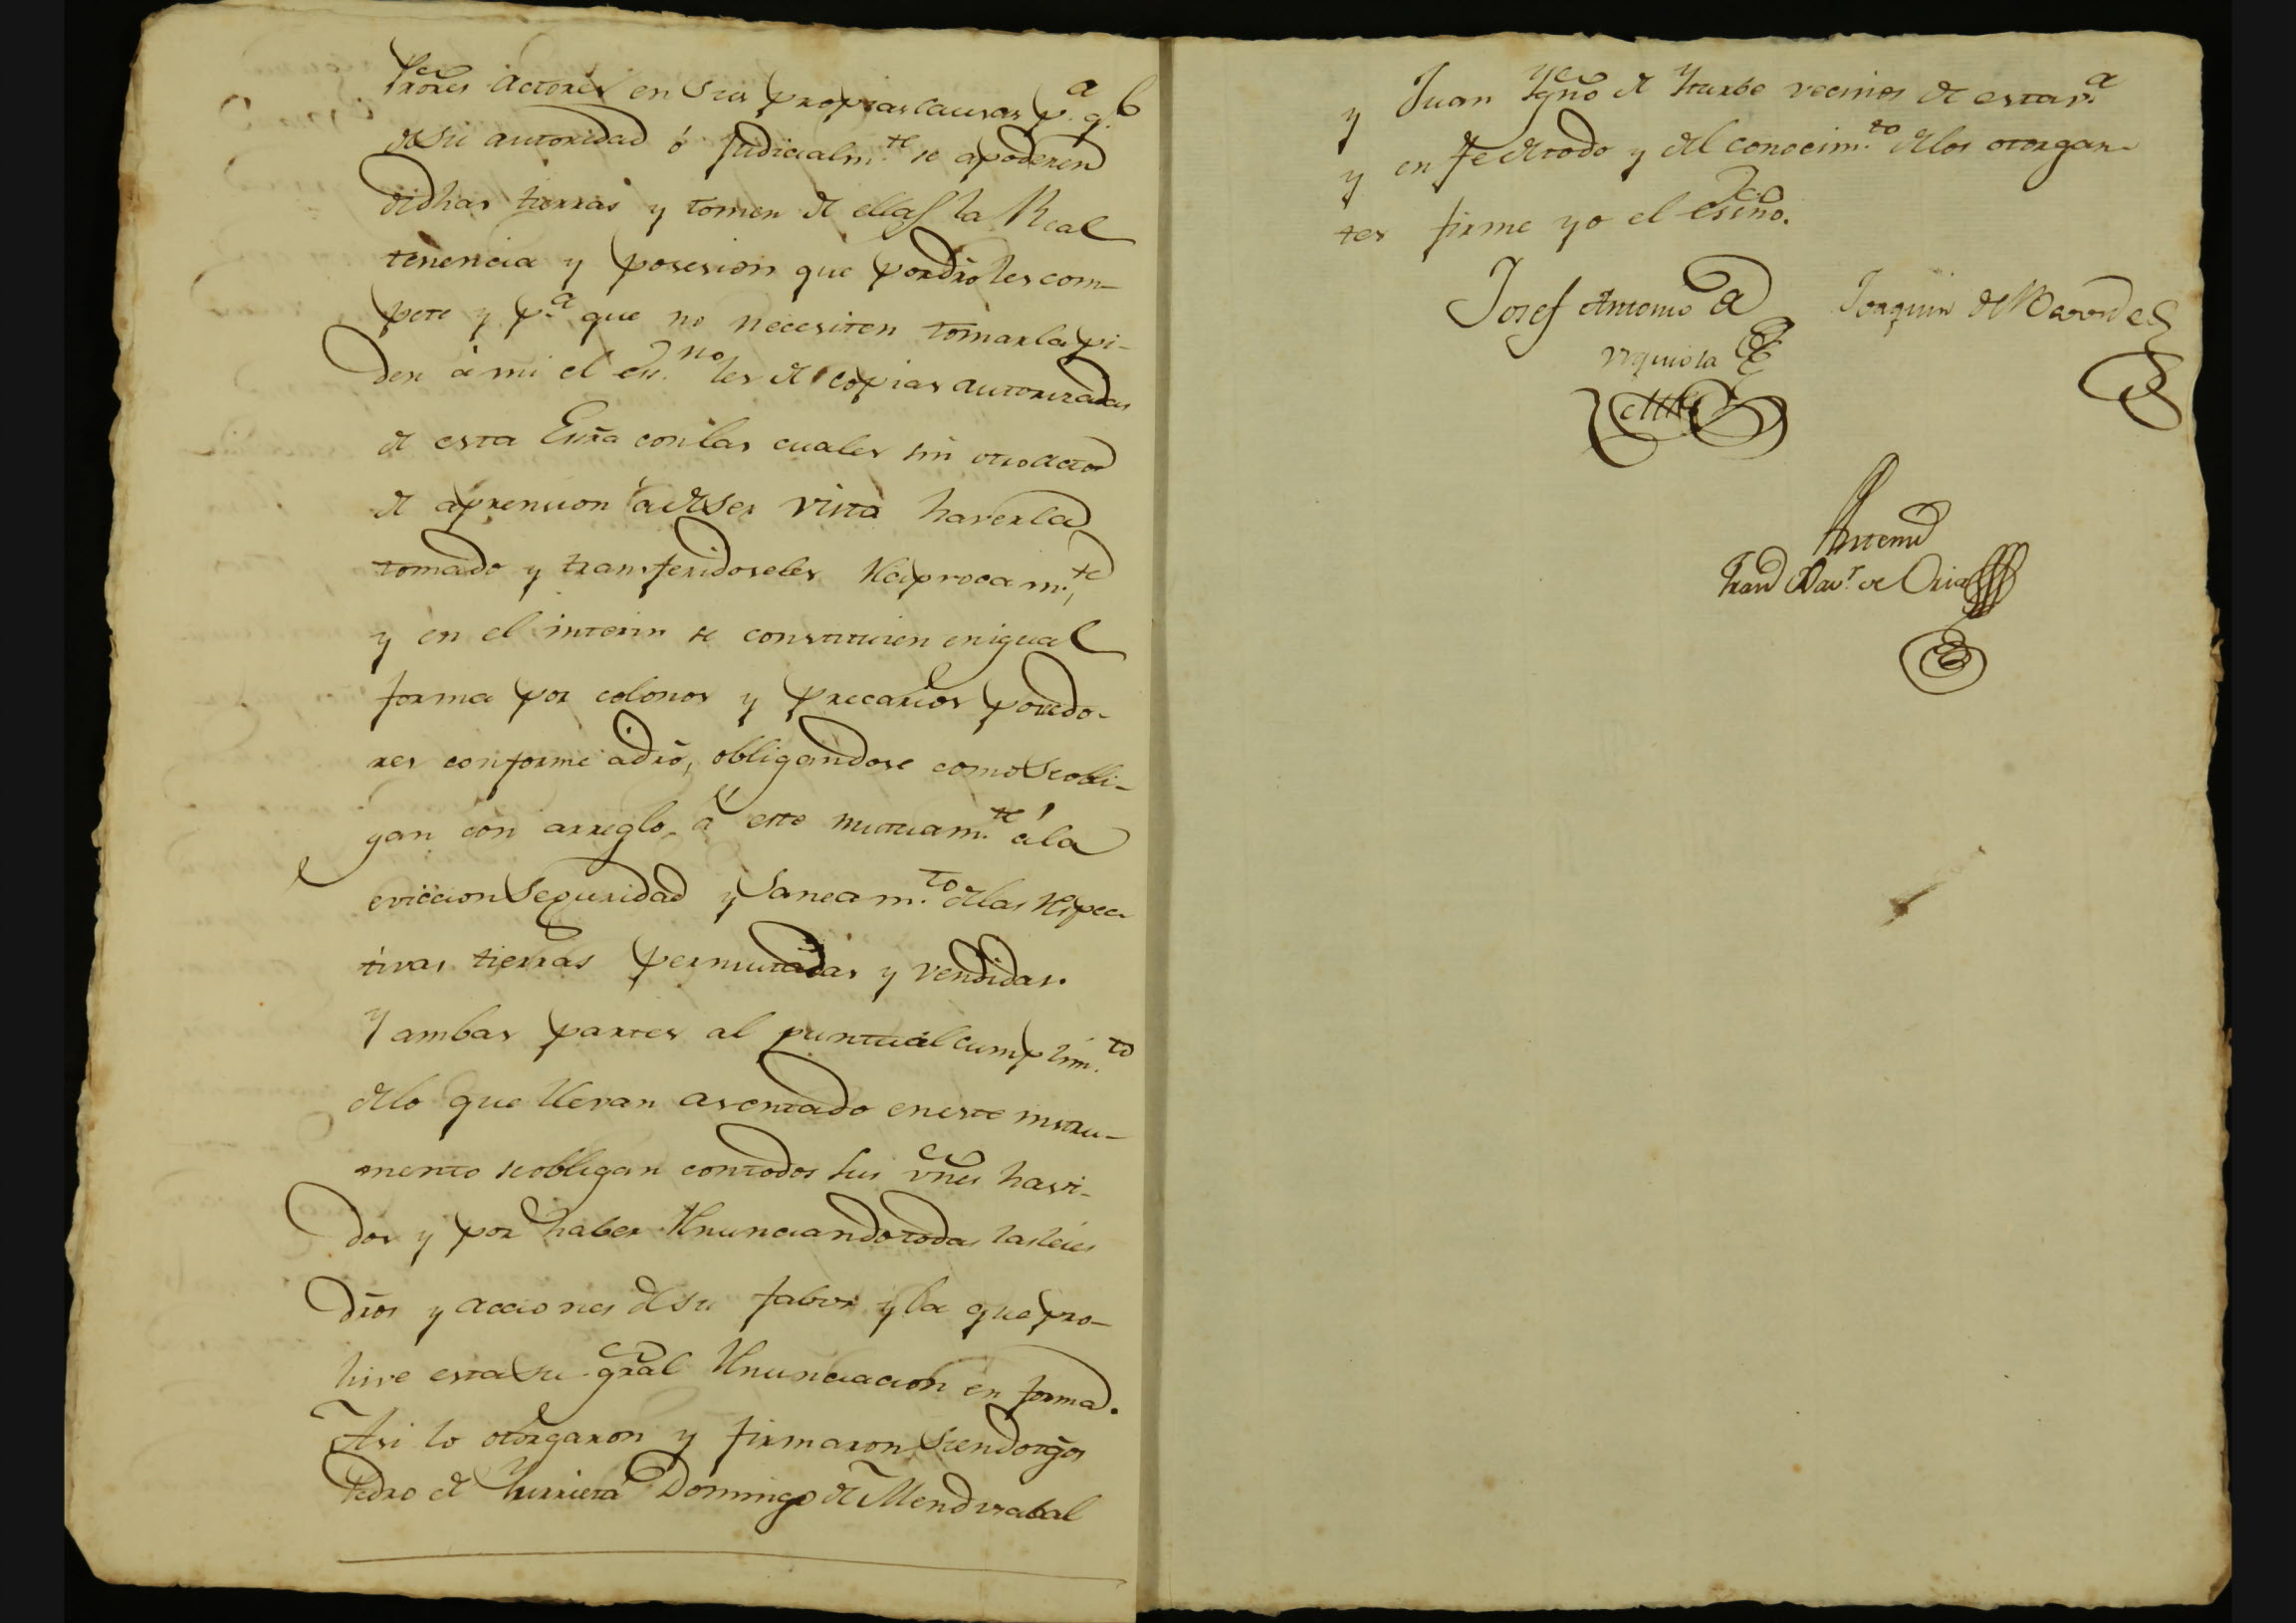 Prōres actores en sus propias causas p.ª q.e
de su autoridad ó Judicialm.te se apoderen
de dhas tierras y tomen de ellas la Real
tenencia y posesion que por dr̄o les com-
pete y p.ª que no necesiten tomarla pi-
den á mi el es.no les dé copias autorizadas
de esta Esrr̄a con las cuales sin otro acto
de aprension á de ser visto haverla
tomado y transferidoseles reciprocam.te,
y en el interin se constituien en igual
forma por colonos y precarios posedo-
res conforme a dr̄o, obligandose como se obli-
gan con arreglo á este mutuam.te á la
eviccion seguridad y saneam.to de las respec-
tivas tierras permutadas y vendidas.
Y ambas partes al puntual cumplim.to
de lo que llevan asentado en este instru-
mento se obligan con todos sus vn̄es havi-
dos y por haber renunciando todas las leies
dr̄os y acciones de su fabor y la que pro-
hive esta su gr̄al renunciacion en forma.
Asi lo otorgaron y firmaron siendo tḡos
Pedro de Domingo de Mendizabal
y Juan Ygn̄o de Yturbe vecinos de esta v.ª
y en fe de todo y del conocim.to de los otorgan-
tes firme yo el esc̄no.
Josef Antonio de
Urquiola
Joaquin de
Antemi
Fran.co Xav.r de Oria